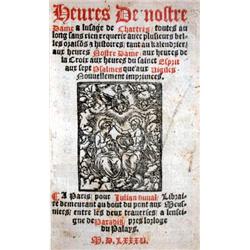 Heures De nostre
Dame a lusage de Chartres: toutes au
long sans rien requerir auec plusieurs bel-
les & histoires; tant au kalendrier;
aux heures Nostre Dame aux heures de
la Croix aux heures du sainct Esprit
aux sept Psalmes que aux Vigiles.
Nouuellement imprimees.
A Paris; pour Iulian duual, Librai-
re demeurant au bout du pont aux Meus-
niers; entre les deux trauerses; a lensei-
gne de Paradis, pres lorloge
du Palays.
M. D. LXXXII.